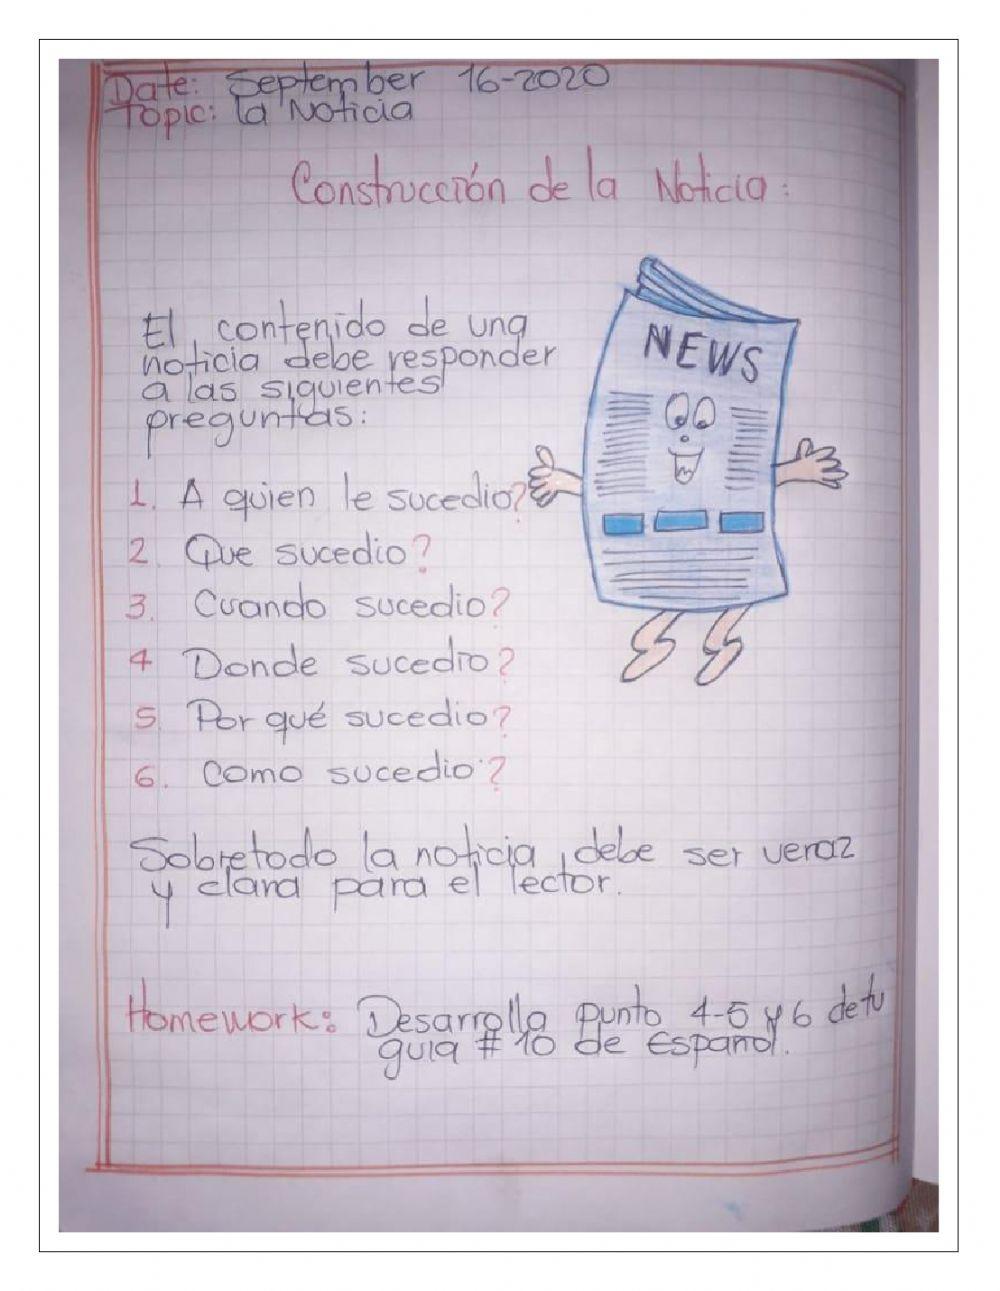 Date: September 16-2020
Topic: la Noticia
Construcción de la Noticia:
El contenido de una
noticia debe responder
a las siguientes
preguntas:
NEWS
1. A quien le sucedio?
2. Que sucedio?
3. Cuando sucedio?
4 Donde sucedio?
5. Por qué sucedio?
6. Como sucedio?
Sobretodo la noticia, debe ser veraz
y clara para el lector.
Homework: Desarrolla punto 4-5 y 6 de tu
guia # 10 de Español.